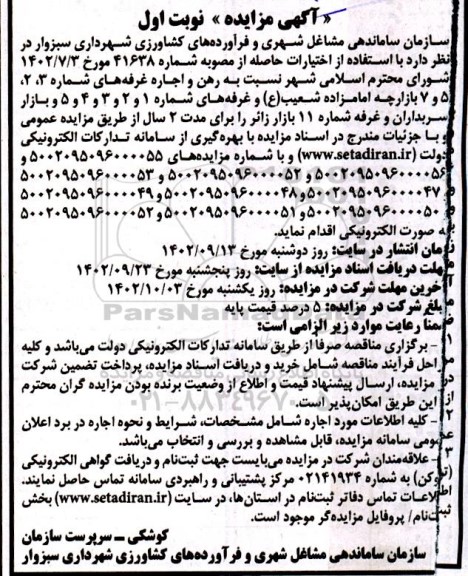 « آگهی مزایده » نوبت اول
سازمان ساماندهی مشاغل شهری و فرآورده‌های کشاورزی شهرداری سبزوار در
نظر دارد با استفاده از اختیارات حاصله از مصوبه شماره ۴۱۶۳۸ مورخ ۱۴۰۲/۷/۳
شورای محترم اسلامی شهر نسبت به رهن و اجاره غرفه‌های شماره ۳، ۲،
۵ و ۷ بازارچه امامزاده شعیب(ع) و غرفه‌های شماره ۱ و ۲ و ۳ و ۴ و ۵ و بازار
سربداران و غرفه شماره ۱۱ بازار زائر را برای مدت ۲ سال از طریق مزایده عمومی
و با جزئیات مندرج در اسناد مزایده با بهره‌گیری از سامانه تدارکات الکترونیکی
دولت (www.setadiran.ir) و با شماره مزایده‌های ۵۰۰۲۰۹۵۰۹۶۰۰۰۰۵۵ و
۵۰۰۲۰۹۵۰۹۶۰۰۰۰۵۶ و ۵۰۰۲۰۹۵۰۹۶۰۰۰۰۵۲ و ۵۰۰۲۰۹۵۰۹۶۰۰۰۰۵۳ و
۵۰۰۲۰۹۵۰۹۶۰۰۰۰۴۷ و ۵۰۰۲۰۹۵۰۹۶۰۰۰۰۴۸ و ۵۰۰۲۰۹۵۰۹۶۰۰۰۰۴۹
و ۵۰۰۲۰۹۵۰۹۶۰۰۰۰۵۰ و ۵۰۰۲۰۹۵۰۹۶۰۰۰۰۵۱ و ۵۰۰۲۰۹۵۰۹۶۰۰۰۰۵۲
به صورت الکترونیکی اقدام نماید.
زمان انتشار در سایت: روز دوشنبه مورخ ۱۴۰۲/۰۹/۱۳
مهلت دریافت اسناد مزایده از سایت: روز پنجشنبه مورخ ۱۴۰۲/۰۹/۲۳
آخرین مهلت شرکت در مزایده: روز یکشنبه مورخ ۱۴۰۲/۱۰/۰۳
مبلغ شرکت در مزایده: ۵ درصد قیمت پایه
ضمنا رعایت موارد زیر الزامی است:
۱ - برگزاری مناقصه صرفا از طریق سامانه تدارکات الکترونیکی دولت می‌باشد و کلیه
مراحل فرآیند مناقصه شامل خرید و دریافت اسناد مزایده، پرداخت تضمین شرکت
در مزایده، ارسال پیشنهاد قیمت و اطلاع از وضعیت برنده بودن مزایده گران محترم
از این طریق امکان‌پذیر است.
۲ - کلیه اطلاعات مورد اجاره شامل مشخصات، شرایط و نحوه اجاره در برد اعلان
عمومی سامانه مزایده، قابل مشاهده و بررسی و انتخاب می‌باشد.
۳ - علاقه‌مندان شرکت در مزایده می‌بایست جهت ثبت‌نام و دریافت گواهی الکترونیکی
(توکن) به شماره ۰۲۱۴۱۹۳۴ مرکز پشتیبانی و راهبردی سامانه تماس حاصل نمایند.
اطلاعات تماس دفاتر ثبت‌نام در استان‌ها، در سایت (www.setadiran.ir) بخش
ثبت‌نام/ پروفایل مزایده‌گر موجود است.
کوشکی ــ سرپرست سازمان
سازمان ساماندهی مشاغل شهری و فرآورده‌های کشاورزی شهرداری سبزوار
ParsNamadData
۰۲۱-۸۸۳۴۹۶۷۰-۵